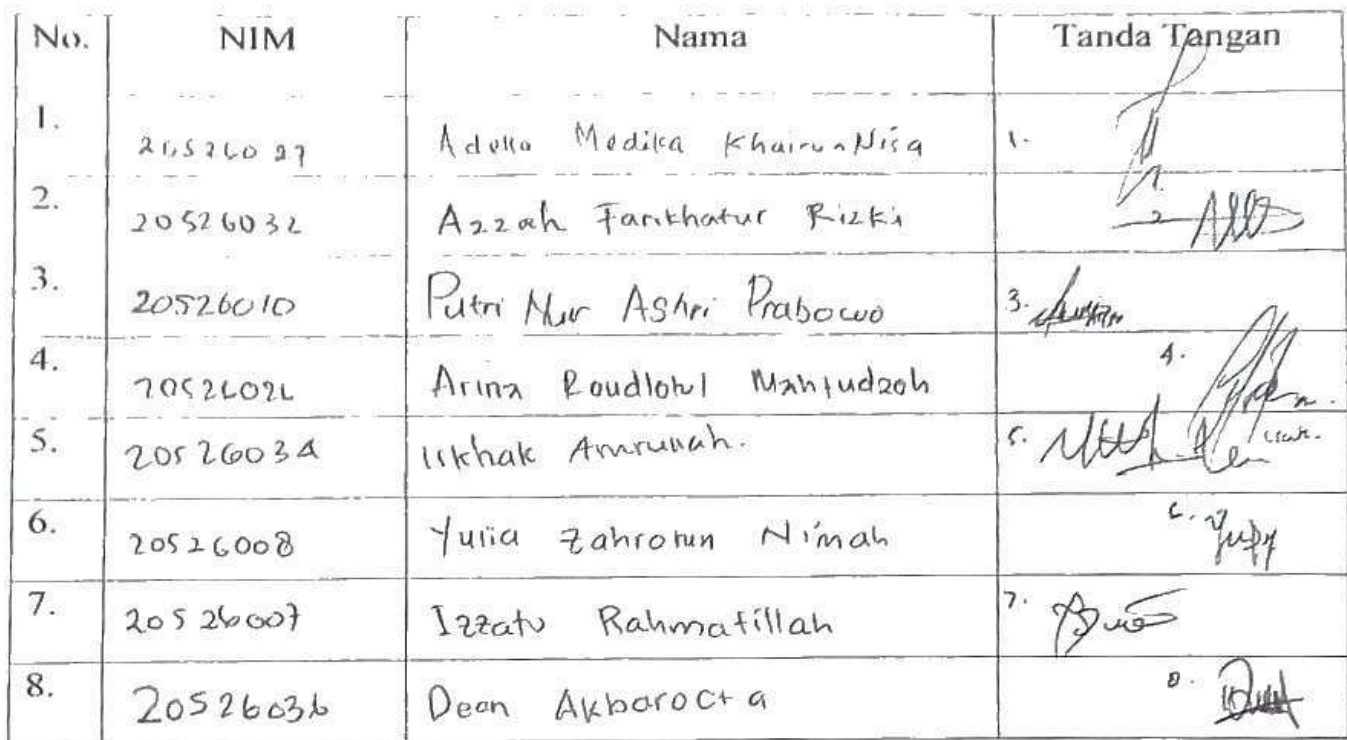 No. NIM Nama Tanda Tangan
1. Medika Khairun Nisa 1.
2. 20526032 Azzah Farikhatur Rizki 2
3. 20526010 Putri Nur Ashri Prabowo 3.
4. Arina Roudlotul 4.
5. 20526034 Iskhak 5.
6. 20526008 Zahrotun Nimah 6.
7. 20526007 Izzatu Rahmatillah 7.
8. 20526036 Dean Akbarocta 8.